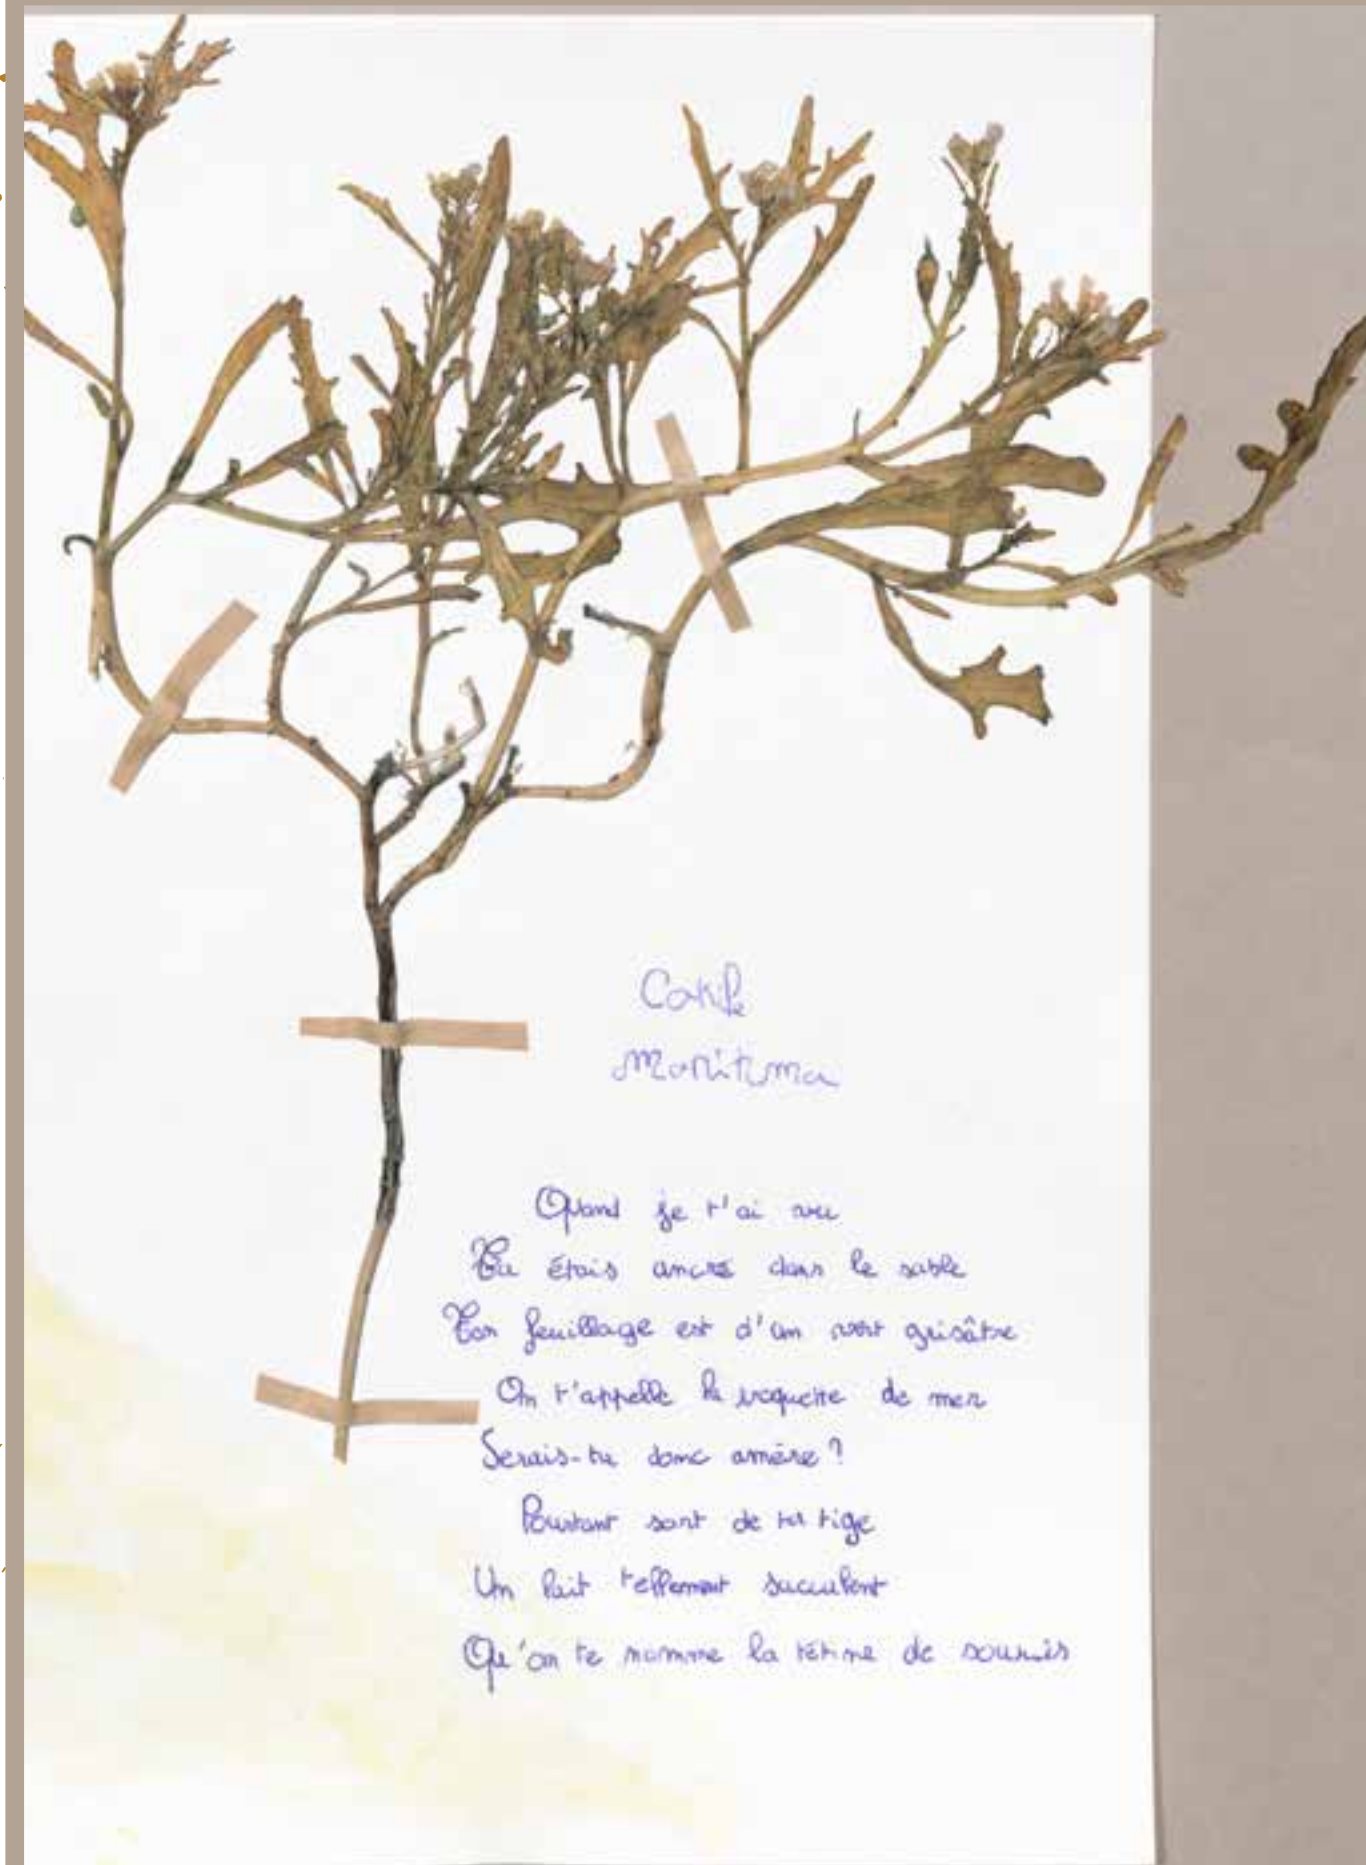 Cakile
Maritima
Quand je t'ai vu
Tu étais ancré dans le sable
Ton feuillage est d'un vert grisâtre
On t'appelle la roquette de mer
Serais-tu donc amère ?
Pourtant sort de ta tige
Un lait tellement succulent
Qu'on te nomme la tétine de souris